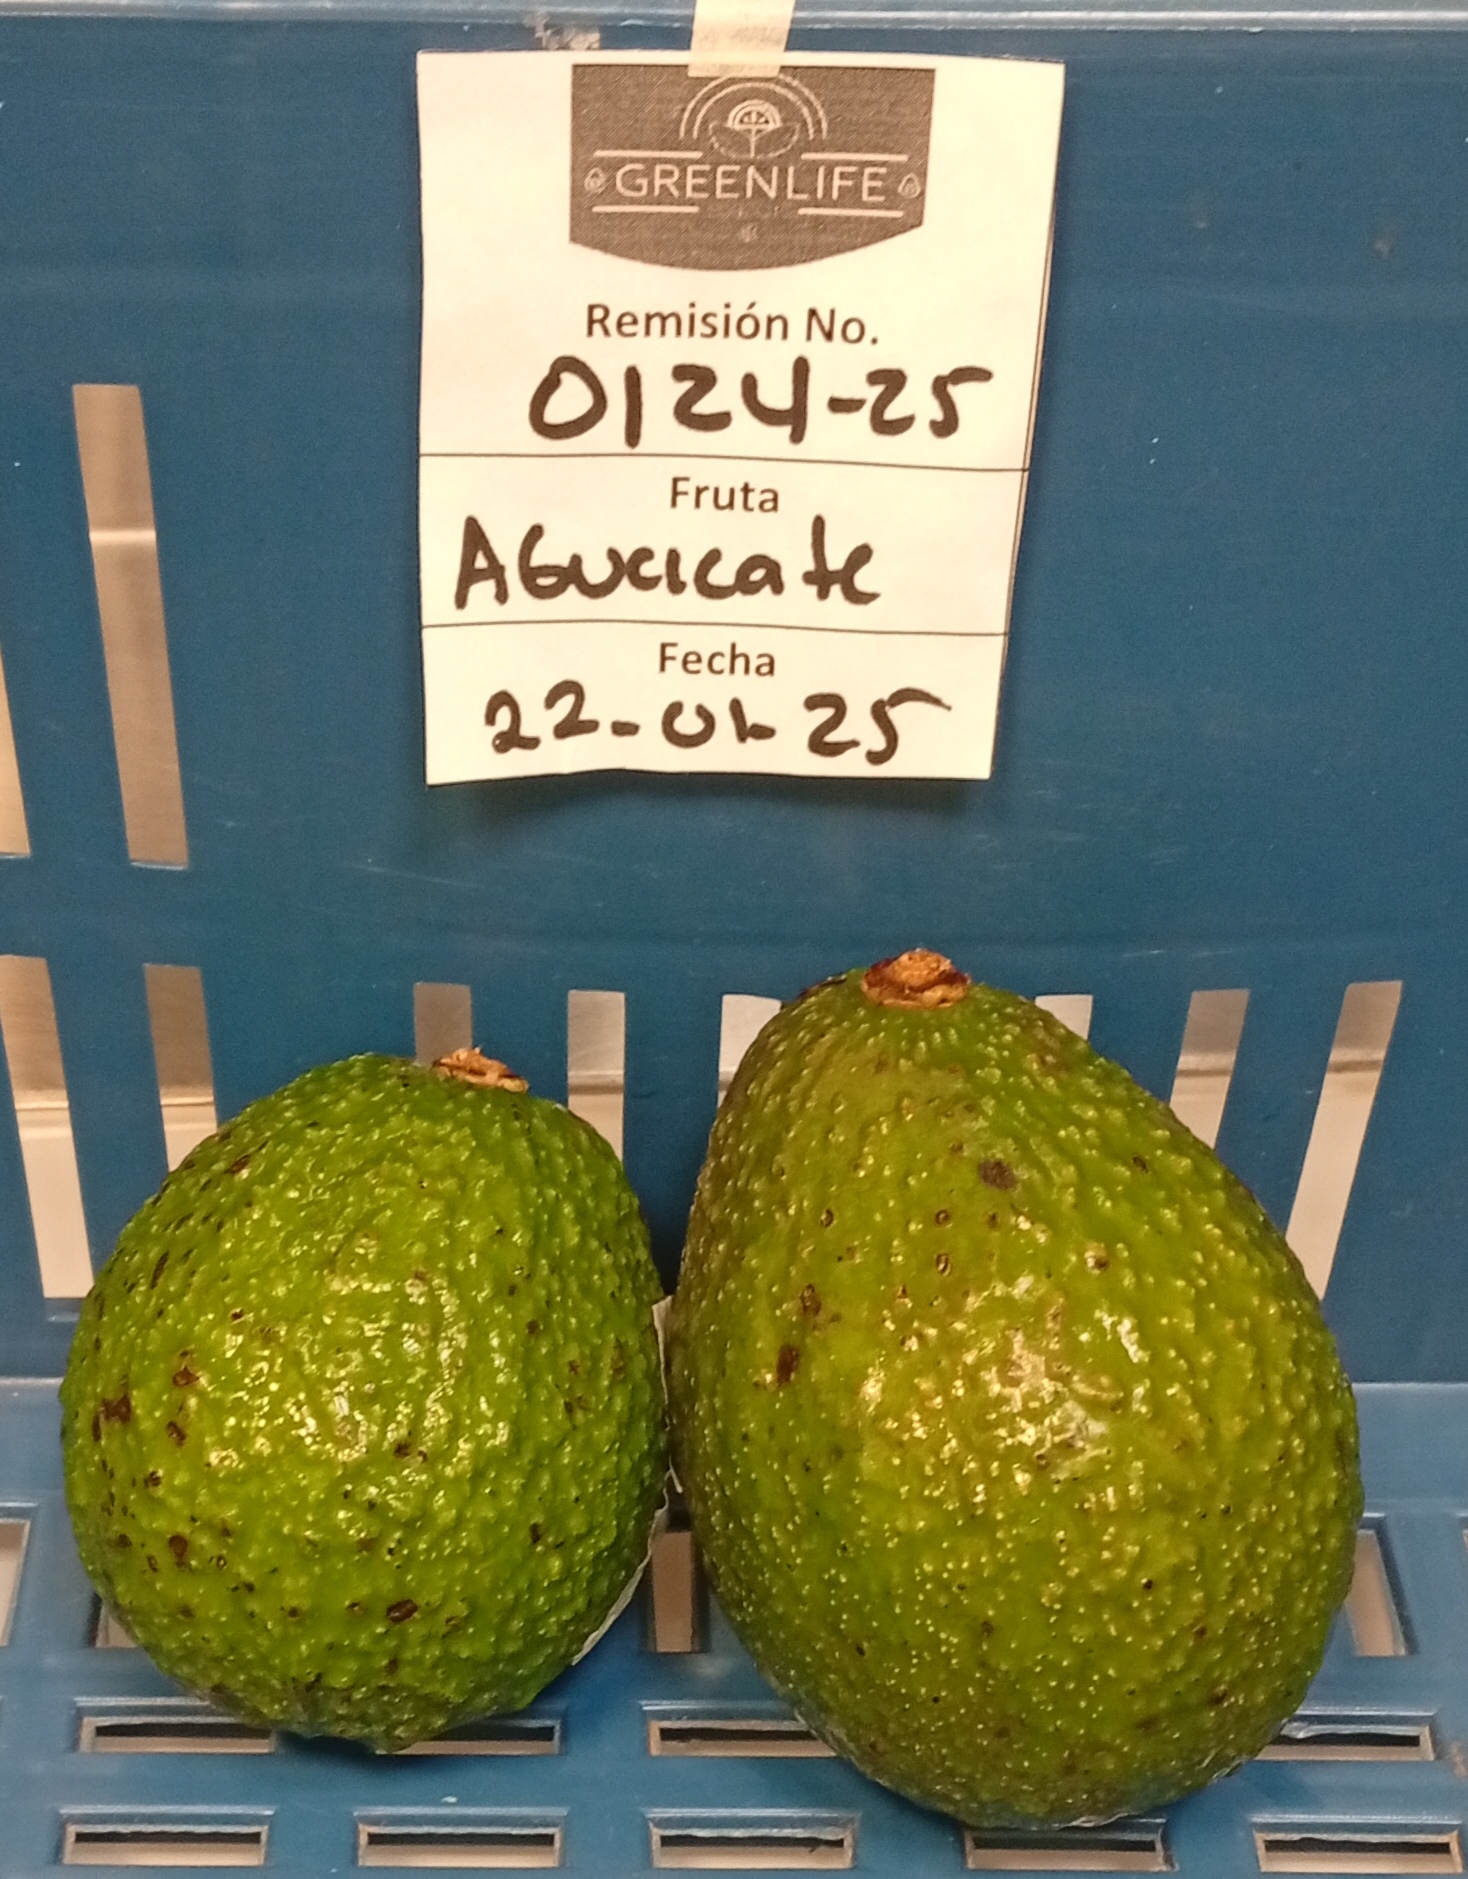 GREENLIFE
Remisión No.
0124-25
Fruta
AGucicate
Fecha
22-01-25